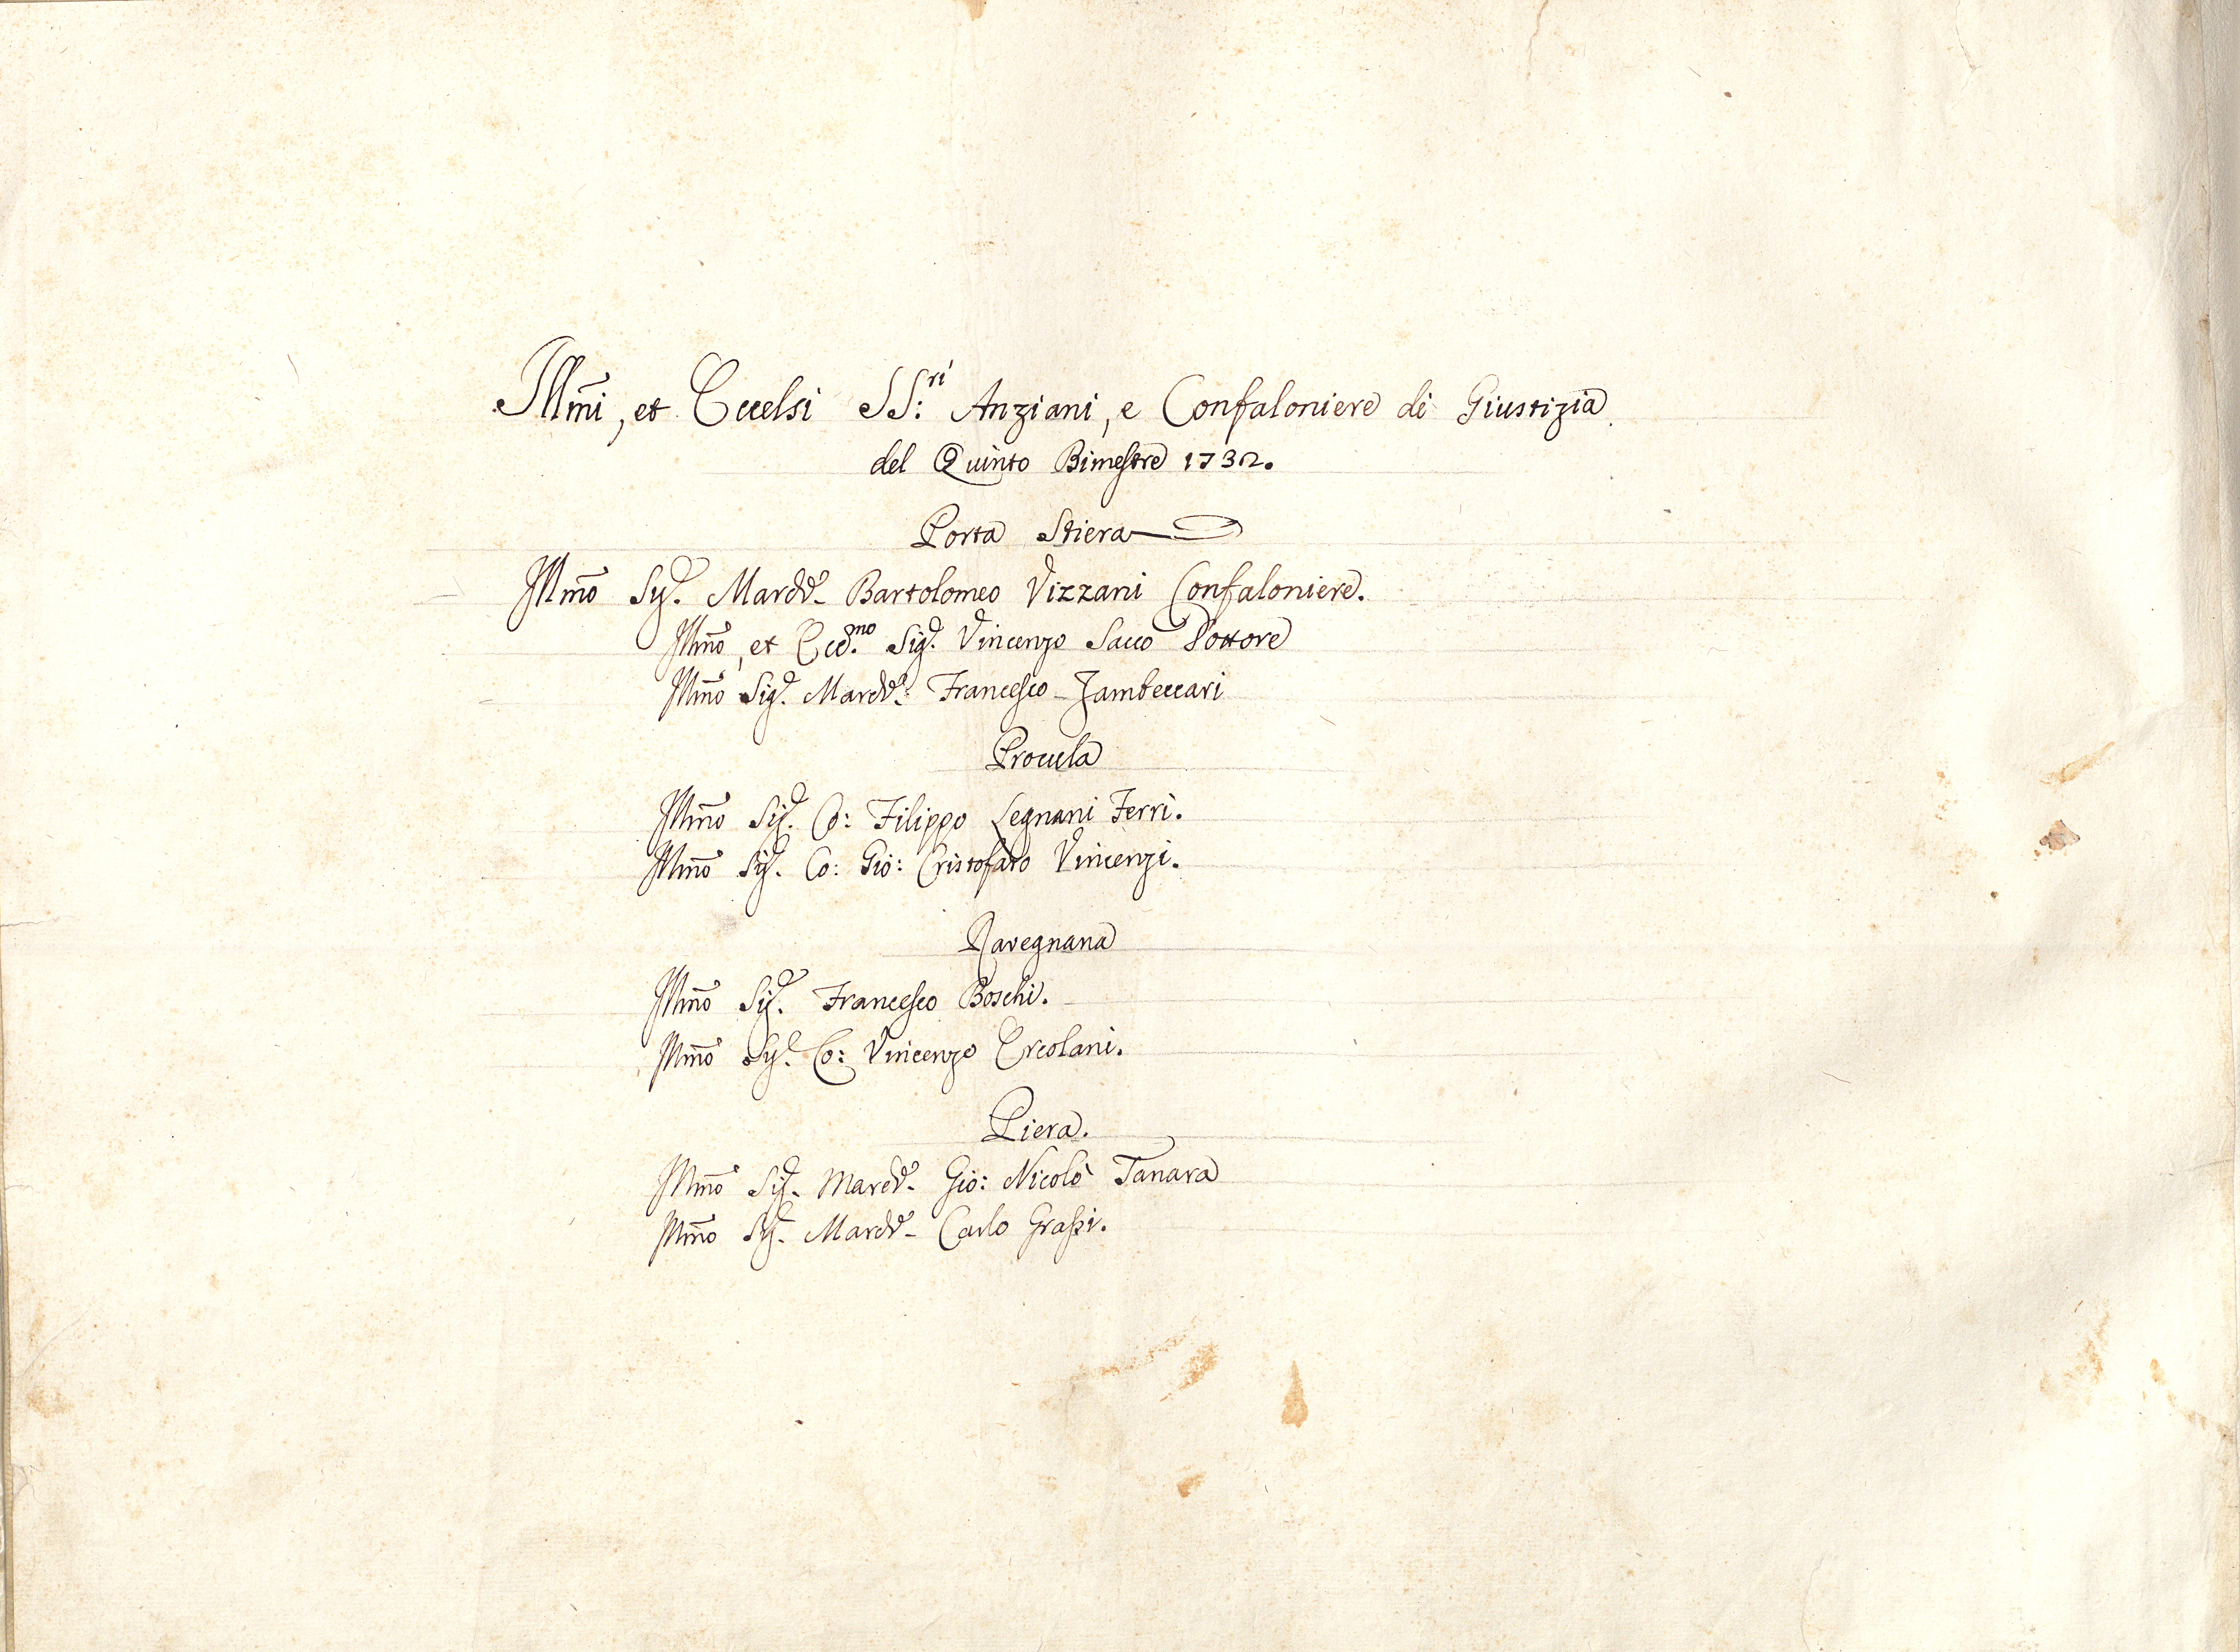 Illm̃i, et Eccelsi SS:ri Anziani, e Confaloniere di Giustizia.
del Quinto Bimestre 1732.
Porta Stiera
Illm̃o Sig.r March.e Bartolomeo Vizzani Confaloniere.
Illm̃o, et Ecc.mo Sig.r Vincenzo Sacco Dottore
Illm̃o Sig.r March.e Francesco Zambeccari
Procula
Illm̃o Sig.r Co: Filippo Legnani Ferri.
Illm̃o Sig.r Co: Gio: Cristofaro Vincenzi.
Ravegnana
Illm̃o Sig.r Francesco Boschi.
Illm̃o Sig.r Co: Vincenzo Ercolani.
Piera.
Illm̃o Sig.r March.e Gio: Nicolò Tanara
Illm̃o Sig.r March.e Carlo Grassi.